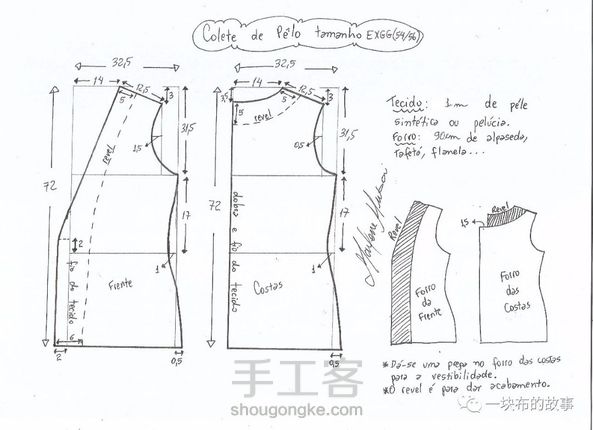 Colete de Pêlo tamanho EXGG(54/56)
32,5
14
12,5
3
5
revel
15
31,5
72
17
2
1
fio do tecido
Frente
6
2
0,5
32,5
14
12,5
3,5
5
3
5
revel
0,5
31,5
72
17
1
dobra e fio do tecido
Costas
0,5
Tecido: 1m de pêle
sintética ou pelúcia.
Forro: 90cm de alpaseda,
tafetá, flanela...
Marlene Mukai
Revel
Forro
da
Frente
Revel
1,5
Forro
das
Costas
*Dá-se uma prega no forro das costas
para a vestibilidade.
*O revel é para dar acabamento.
手工客
shougongke.com
一块布的故事